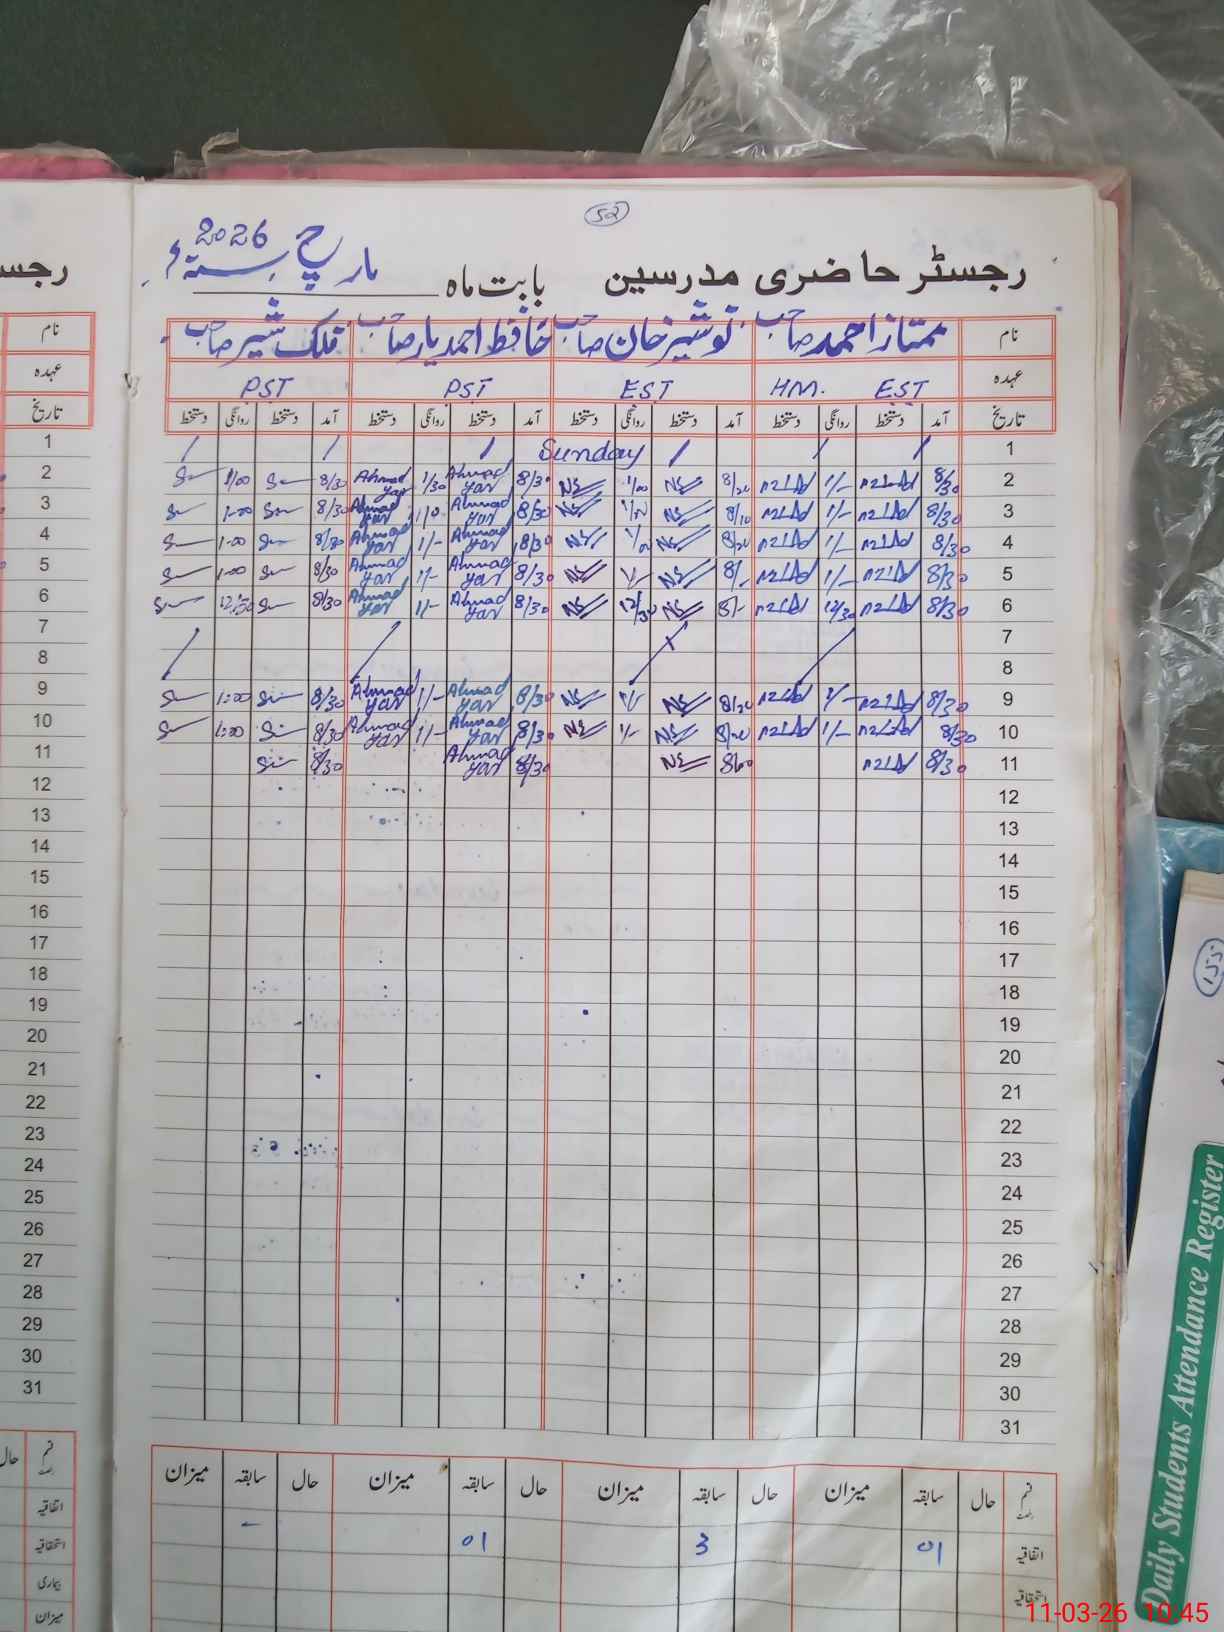 52
رجسٹر حاضری مدرسین بابت ماہ مارچ سنہ 2026ء
نام ممتاز احمد صاحب نوشیر خان صاحب حافظ احمد یار صاحب فلک شیر صاحب
عہدہ EST HM. EST PST PST
تاریخ آمد دستخط روانگی دستخط آمد دستخط روانگی دستخط آمد دستخط روانگی دستخط آمد دستخط روانگی دستخط
1 Sunday
2 8/30 1/- 8/20 1/00 8/30 Ahmad Yar 1/30 Ahmad Yar 8/30 1/00
3 8/30 1/- 8/10 8/30 Ahmad Yar Ahmad Yar 8/30 1-00
4 8/30 1/- 8/20 8/30 Ahmad Yar 1/- Ahmad Yar 8/30 1-00
5 8/30 1/- 8/- 1/- 8/30 Ahmad Yar 1/- Ahmad Yar 8/30 1-00
6 8/30 12/30 8/- 12/30 8/30 Ahmad Yar 1/- Ahmad Yar 8/30 12/30
7
8
9 8/30 1/- 8/20 1/- 8/30 Ahmad Yar 1/- Ahmad Yar 8/30 1:00
10 8/30 1/- 8/20 1/- 8/30 Ahmad Yar 1/- Ahmad Yar 8/30 1:00
11 8/30 8/30 Ahmad Yar 8/30
12
13
14
15
16
17
18
19
20
21
22
23
24
25
26
27
28
29
30
31
حال سابقہ میزان حال سابقہ میزان حال سابقہ میزان حال سابقہ میزان
اتفاقیہ 01 3 01 -
استحقاقیہ
رجسـ
نام
عہدہ
تاریخ
1
2
3
4
5
6
7
8
9
10
11
12
13
14
15
16
17
18
19
20
21
22
23
24
25
26
27
28
29
30
31
حال
اتفاقیہ
استحقاقیہ
بیماری
میزان
Daily Students Attendance Register
11-03-26 10:45